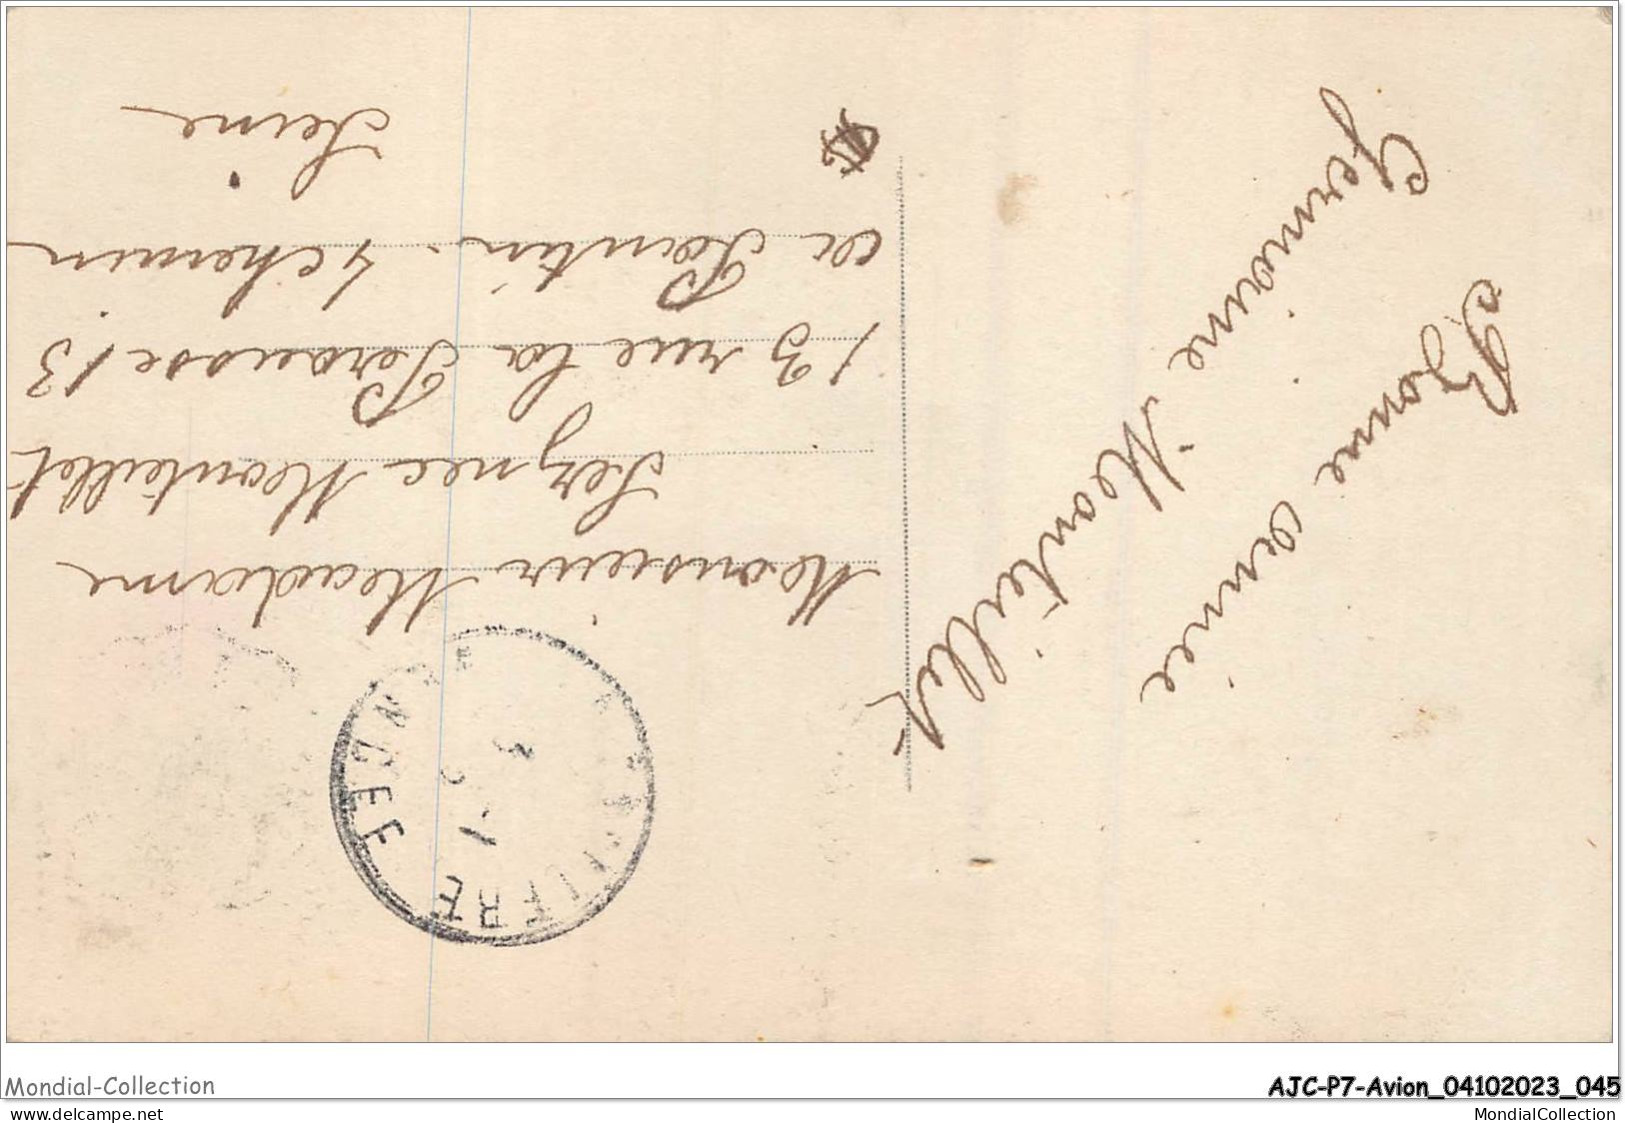 Bonne année
Germaine Monteillet
Monsieur Madame
Seznec Monteillet
13 rue la Perouse 13
a Pantin. 4 chemin
Seine
Mondial-Collection
www.delcampe.net
AJC-P7-Avion_04102023_045
MondialCollection